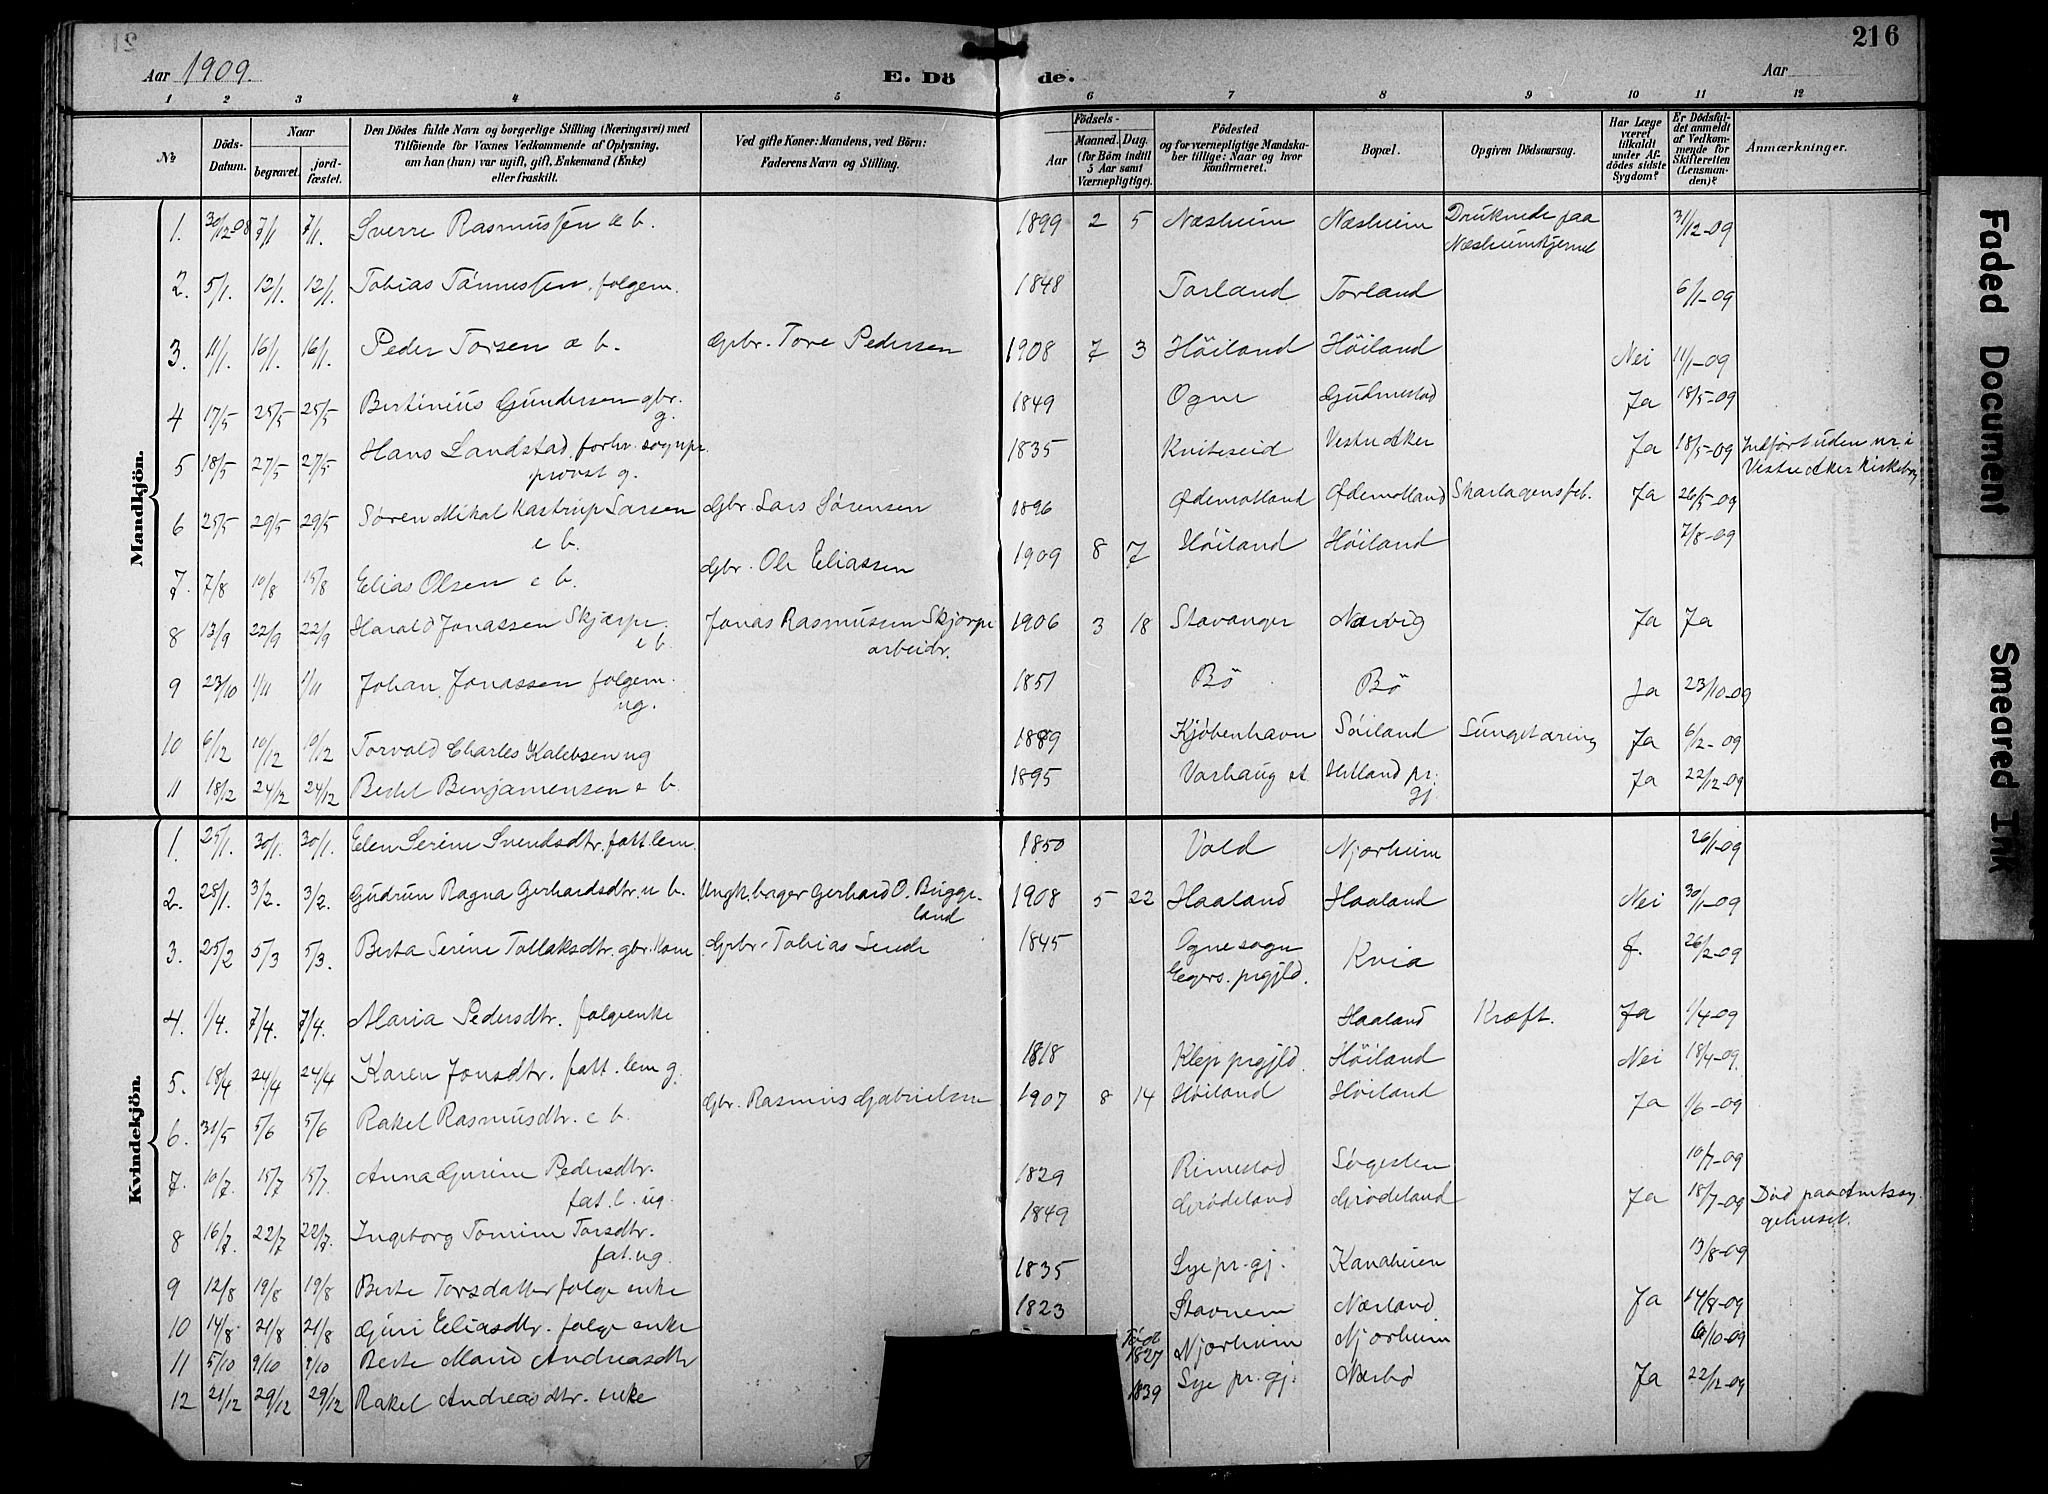 216
Aar 1909. E. Dö de. Aar
1 2 3 4 5 6 7 8 9 10 11 12
№ Döds-Datum. Naar begravet. jordfæstet. Den Dödes fulde Navn og borgerlige Stilling (Næringsvei) med Tilföiende for Voxnes Vedkommende af Oplysning, om han (hun) var ugift, gift, Enkemand (Enke) eller fraskilt. Ved gifte Koner: Mandens, ved Börn: Faderens Navn og Stilling. Födsels- Aar Maaned. Dag. (for Börn indtil 5 Aar samt Værnepligtige). Födested og for værnepligtige Mandskaber tillige: Naar og hvor konfirmeret. Bopæl. Opgiven Dödsaarsag. Har Læge været tilkaldt under Afdödes sidste Sygdom? Er Dödsfaldet anmeldt af Vedkommende for Skifteretten (Lensmanden)? Anmærkninger.
Mandkjön.
1. 30/12-08 7/1 7/1. Sverre Rasmussen e b. 1899 2 5 Næsheim Næsheim Druknede paa 31/12-09
Næsheimstjernet
2. 5/1. 12/1. 12/1. Tobias Tönnessen, folgem. 1848 Torland Torland 6/1-09
3. 11/1. 16/1. 16/1. Peder Torsen e b. Gbr. Tore Pedersen 1908 7 3 Höiland Höiland Nei 11/1-09
4 17/5 25/5 25/5 Bertinius Gundersen gbr. 1849 Ogne Gudmestad Ja 18/5-09
g.
5 18/5 27/5 27/5 Hans Landstad, forhv. sognepr. 1835 Kviteseid Vestre Aker Ja 18/5-09 Indført uden nr. i
provst g. Vestre Aker kirkebog
6 25/5 29/5 29/5 Søren Mikal Kastrup Larsen Gbr. Lars Sørensen 1896 Ødemotland Ødemotland Skarlagensfeb. Ja 26/5-09
e b.
7. 7/8 10/8 15/8 Elias Olsen e b. Gbr. Ole Eliassen 1909 8 7 Höiland Höiland 7/8-09
8 13/9 22/9 22/9 Harald Jonassen Skjærpe. Jonas Rasmussen Skjørpe 1906 3 18 Stavanger Narvig Ja Ja
e b. arbeidr.
9 23/10 1/11 1/11 Johan Jonassen folgem. 1851 Bö Bö Ja 23/10-09
ug.
10 6/12 10/12 19/12 Torvald Charles Kalebsen ug 1889 Kjöbenhavn Söiland Lungetæring Ja 6/12-09
11 18/12 24/12 24/12 Bertel Benjamensen e b. 1895 Varhaug st. Hetland pr. Ja 22/12-09
gj.
Kvindekjön.
1. 25/1. 30/1. 30/1. Elen Serine Svendsdtr. fatt. lem. 1850 Vold Njærheim 26/1-09
2. 28/1. 3/2. 3/2. Gudrun Ragna Gerhardsdtr. u b. Ungk. bager Gerhard O. Bugge- 1908 5 22 Haaland Haaland Nei 30/1-09
land
3. 25/2 5/3 5/3. Berta Serine Tollaksdtr. gbr. kone Gbr. Tobias Lende 1845 Ogne sogn Kvia J. 26/2-09
Egers. prgjld.
4. 1/4. 7/4. 7/4. Maria Pedersdtr. folgeenke Haaland Kræft. Ja 1/4-09
5. 18/4 24/4 24/4 Karen Jonsdtr. fatt. lem g. 1818 Klep prgjld. Höiland Nei 18/4-09.
6. 31/5 5/6 5/6 Rakel Rasmusdtr. e b. Gbr. Rasmus Gabrielsen 1907 8 14 Höiland Höiland Ja 1/6-09
7. 10/7. 15/7 15/7. Anna Gurine Pedersdtr. 1829 Rimestad Søgesten 10/7-09
fat. l. ug.
8 16/7. 22/7 22/7. Ingeborg Tomine Torsdtr. 1849 Grödeland Grödeland Ja 18/7-09 Död paa Amtssy.
fat. ug. gehuset.
9 12/8 19/8 19/8 Berte Torsdatter folge enke 1835 Lye pr. gj. Kanaheien 13/8-09
10 14/8 21/8 21/8 Guri Eliasdtr. folge enke 1823 Stavnem Nærland Ja 14/8-09
11 5/10 9/10 9/10 Berte Marie Andreasdtr Födt 1827 Njærheim Njærheim 6/10-09
12 21/12 29/12 29/12 Rakel Andreasdtr. enke 1839 Lye pr. gj. Nærbø Ja 22/12-09
Faded Document
Smeared Ink